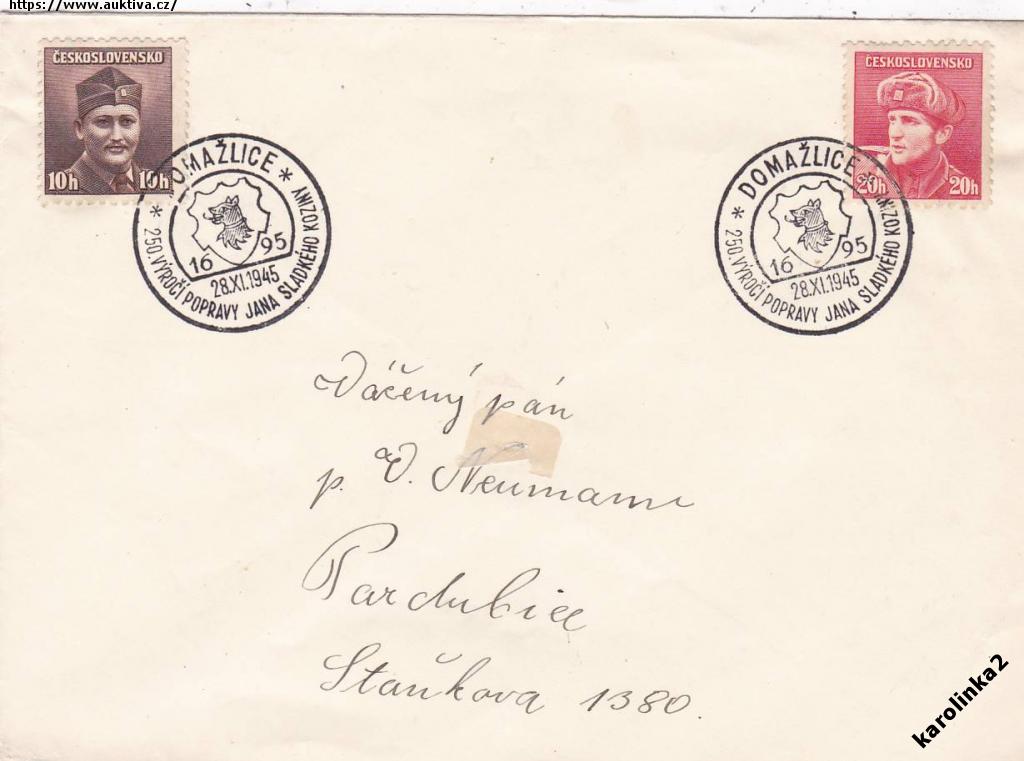 https://www.auktiva.cz/
ČESKOSLOVENSKO
10h 10h
ČESKOSLOVENSKO
20h 20h
DOMAŽLICE
* 250. VÝROČÍ POPRAVY JANA SLADKÉHO KOZINY *
16 95
28.XI.1945
DOMAŽLICE
* 250. VÝROČÍ POPRAVY JANA SLADKÉHO KOZINY
16 95
28.XI.1945
Vážený pán
p. V. Neumann
Pardubice
Staňkova 1380.
karolinka2